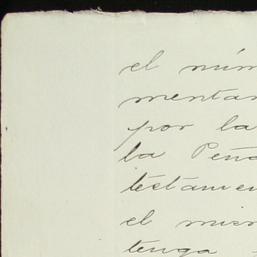 el núm
mentar
por la
la Peña
testamen
el mism
tenga